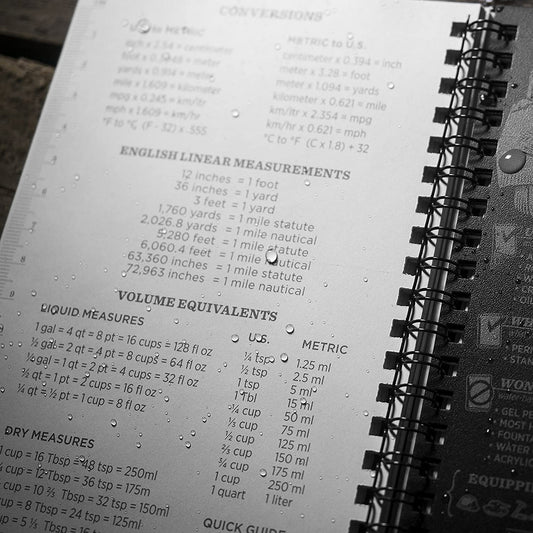 CONVERSIONS
to METRIC
inch x 2.54 = centimeter
foot x 0.3048 = meter
yards x 0.914 = meter
mile x 1.609 = kilometer
mpg x 0.245 = km/ltr
mph x 1.609 = km/hr
°F to °C (F - 32) x .555
METRIC to U.S.
centimeter x 0.394 = inch
meter x 3.28 = foot
meter x 1.094 = yards
kilometer x 0.621 = mile
km/ltr x 2.354 = mpg
km/hr x 0.621 = mph
°C to °F (C x 1.8) + 32
ENGLISH LINEAR MEASUREMENTS
12 inches = 1 foot
36 inches = 1 yard
3 feet = 1 yard
1,760 yards = 1 mile statute
2,026.8 yards = 1 mile nautical
5,280 feet = 1 mile statute
6,060.4 feet = 1 mile nautical
63,360 inches = 1 mile statute
72,963 inches = 1 mile nautical
VOLUME EQUIVALENTS
LIQUID MEASURES
1 gal = 4 qt = 8 pt = 16 cups = 128 fl oz
½ gal = 2 qt = 4 pt = 8 cups = 64 fl oz
¼ gal = 1 qt = 2 pt = 4 cups = 32 fl oz
½ qt = 1 pt = 2 cups = 16 fl oz
¼ qt = ½ pt = 1 cup = 8 fl oz
U.S. METRIC
¼ tsp 1.25 ml
½ tsp 2.5 ml
1 tsp 5 ml
1 Tbl 15 ml
¼ cup 50 ml
⅓ cup 75 ml
½ cup 125 ml
⅔ cup 150 ml
¾ cup 175 ml
1 cup 250 ml
1 quart 1 liter
DRY MEASURES
1 cup = 16 Tbsp = 48 tsp = 250ml
cup = 12 Tbsp = 36 tsp = 175m
cup = 10 ⅔ Tbsp = 32 tsp = 150ml
cup = 8 Tbsp = 24 tsp = 125ml
cup = 5 ⅓ Tbsp = 16 tsp
QUICK GUIDE
PER
STAN
WON
water-ba
GEL PE
MOST H
FOUNTA
WATER
ACRYLIC
EQUIPPI